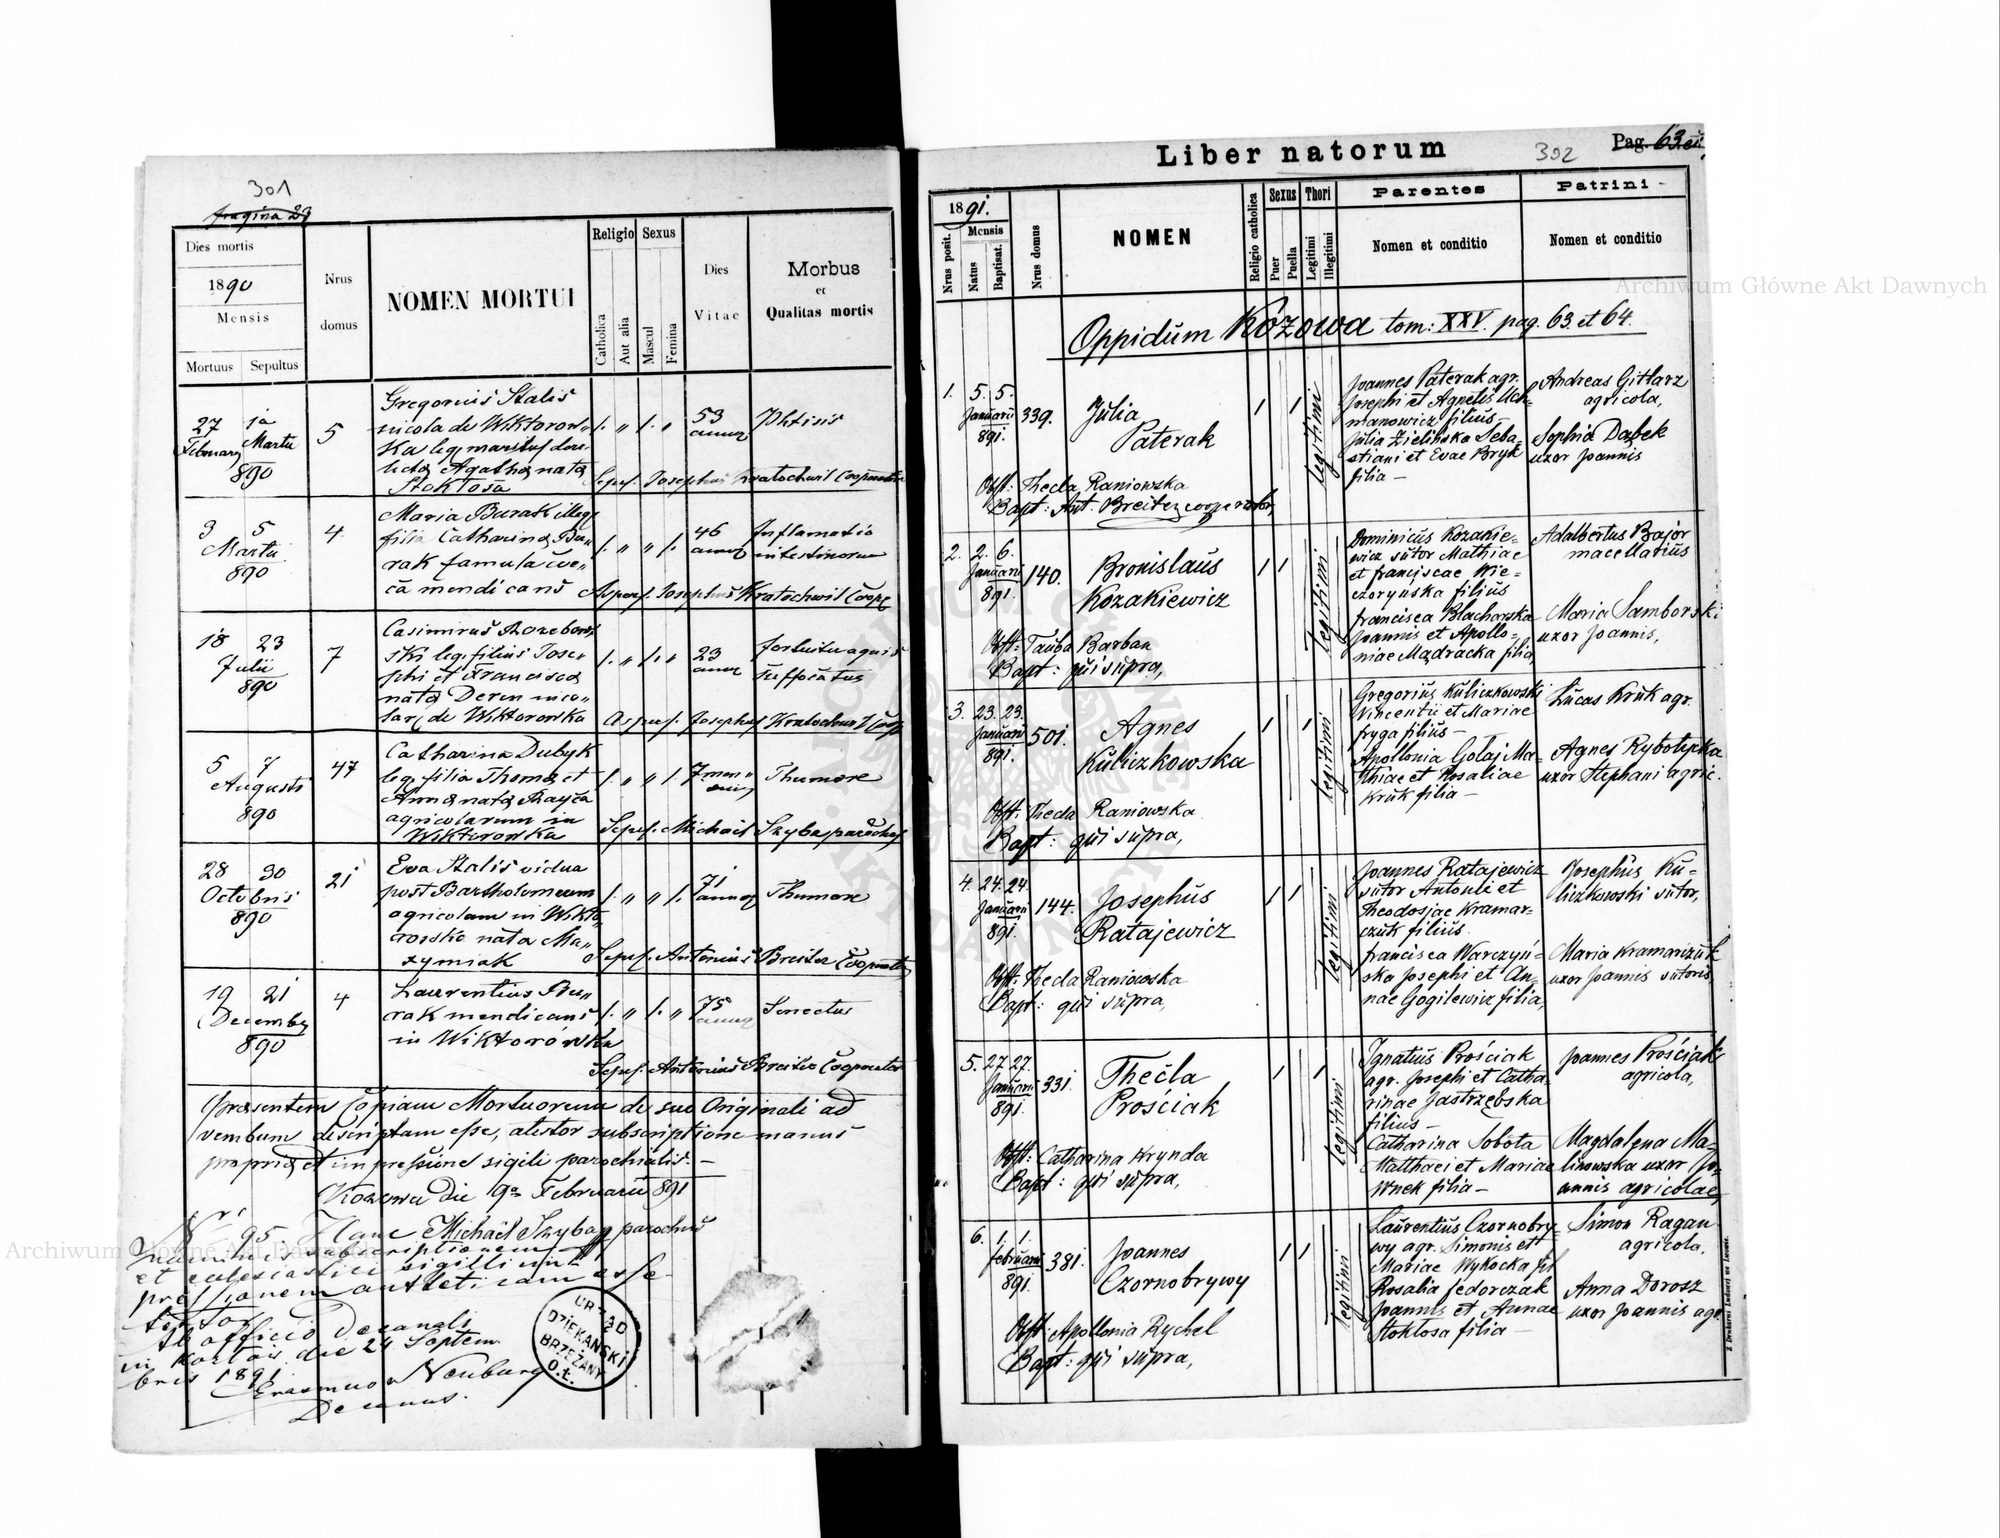 301
pagina 23
Dies mortis
1890
Mensis
Mortuus Sepultus
Nrus domus
NOMEN MORTUI
Religio
Catholica
Aut alia
Sexus
Mascul
Femina
Dies Vitae
Morbus
et
Qualitas mortis
27 1a
Februarii Martii
890
5
Gregorius Stalis
nicola de Wiktorow„
ka leg maritus
Agatha nata
Stoktosa
1. „ 1. „
53
annor
Phtisis
Sepel. Josephus Kratochwil Cooperator
3 5
Martii
890
4
Maria Burak illeg
filia Catharina Bu„
rak famula coe„
ca mendicans
1. „ „ 1.
46
annor
Inflamatio
intestinorum
Asper. Josephus Kratochwil Coope
18 23
Julii
890
7
Casimirus
ski leg. filius Jose„
phi et Francisca
nata Deren inco„
lar. de Wiktorowka
1. „ 1. „
23
annor
fortuitu aquis
suffocatus
Asper. Josephus Kratochwil Coop
5 7
Augusti
890
47
Catharina Dubyk
leg. filia Thoma et
Anna nata
agricolarum in
Wiktorowka
1. „ „ 1.
7 men„
sium
Thumore
Sepel. Michael Szyba parochus
28 30
Octobris
890
21
Eva Stalis vidua
post Bartholomeum
agricolam in Wikto„
rowsko nata Ma„
zymiak
1. „ „ 1.
71
annor
Thumore
Sepel. Antonius Breiter Cooperator
19 21
Decembr
890
4
Laurentius Bu„
rak mendicans
in Wiktorówka
1. „ 1. „
75
annor
Senectus
Sepel. Antonius Breiter Cooperator
Praesentem Copiam Mortuorum de suo Originali ad
verbum descriptam esse, atestor subscriptione manus
propria et impressione sigili parochialis. —
Kozowa die 9a Februarii 891
Nri 95 Hanc Michael Szybag parochi
manus subscriptionem
et eclesiastici sigilli im
pressionem autenticam esse
testor
Ab officio Decanali
in die 24 Septem
bris 1891
Erasmus Neuburg
Decanus.
URZĄD
DZIEKAŃSKI
BRZEŻANY
O.ł.
Liber natorum
302
Pag. 63 et
1891.
Nrus posit.
Mensis
Natus
Baptisat.
Nrus domus
NOMEN
Religio catholica
Sexus
Puer
Puella
Thori
Legitimi
Illegitimi
Parentes
Nomen et conditio
Patrini
Nomen et conditio
Oppidum Kozowa tom: XXV. pag. 63 et 64.
1. 5. 5.
Januarii
891.
339.
Julia
Paterak
legitimi
Joannes Paterak agr.
Josephi et Agnetis Uch„
manowicz filius —
Julia Zielińska Seba„
stiani et Evae Bryk
filia —
Andreas Gitlarz
agricola,
Sophia Dąbek
uxor Joannis
Obst: Thecla Raniowska
Bapt: Ant. Breiter cooperator,
2. 2. 6.
Januarii
891.
140.
Bronislaus
Kozakiewicz
legitimi
Dominicus Kozakie=
wicz sutor Mathiae
et franciscae Wie=
czoryńska filius
francisca Blacharska
Joannis et Apollo=
niae Mądracka filia,
Adalbertus Bajor
macellarius
Maria Samborski
uxor Joannis,
Obst: Tauba Barban
Bapt: qui supra,
3. 23. 23.
Januarii
891.
501.
Agnes
Kuliczkowska
legitimi
Gregorius Kuliczkowski
Vincentii et Mariae
fryga filius —
Apollonia Gołaj Ma=
thiae et Rosaliae
Kruk filia —
Lucas Kruk agr.
Agnes Rybotycka
uxor Stephani agric.
Obst: Thecla Raniowska
Bapt: qui supra,
4. 24. 24.
Januarii
891.
144.
Josephus
Ratajewicz
legitimi
Joannes Ratajewicz
sutor Antonii et
Theodosiae Kramar=
czuk filius
francisca Warczyń=
ska Josephi et An=
nae Gogilewicz filia,
Josephus Ku=
liczkowski sutor,
Maria Kramarczuk
uxor Joannis sutoris,
Obst: Thecla Raniowska
Bapt: qui supra,
5. 27. 27.
Januarii
891.
331.
Thecla
Prościak
legitimi
Ignatius Prościak
agr. Josephi et Catha
rinae Jastrzębska
filius —
Catharina Sobota
Matthaei et Mariae
Wnek filia —
Joannes Prościak
agricola,
Magdalena Ma=
linowska uxor Jo=
annis agricolae
Obst: Catharina Krynda
Bapt: qui supra,
6. 1. 1.
februarii
891.
381.
Joannes
Czornobrywy
legitimi
Laurentius Czornobry=
wy agr. Simonis et
Mariae Wykocka fil
Rosalia fedorczak
Joannis et Annae
Stoktosa filia —
Simon Ragan
agricola,
Anna Dorosz
uxor Joannis agr.
Obst: Apollonia Rychel
Bapt: qui supra,
Z Drukarni Ludowej we Lwowie.
Archiwum Główne Akt Dawnych
Archiwum Główne Akt Dawnych